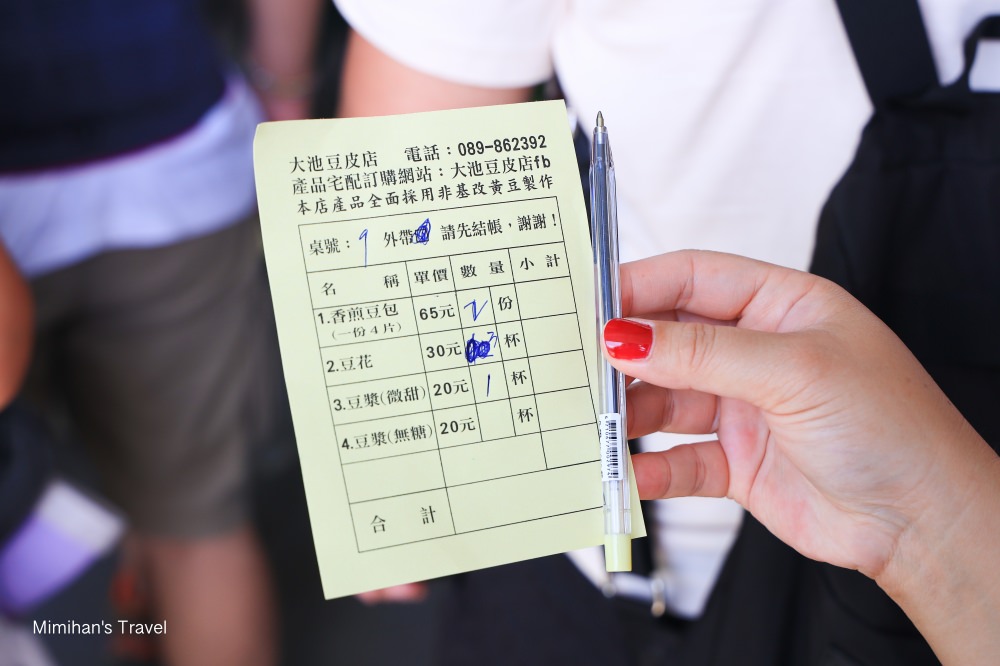 大池豆皮店 電話：089-862392
產品宅配訂購網站：大池豆皮店fb
本店產品全面採用非基改黃豆製作
桌號：9 外帶 請先結帳，謝謝！
名稱 單價 數量 小計
1.香煎豆包 65元 2 份
(一份4片)
2.豆花 30元 杯
3.豆漿(微甜) 20元 1 杯
4.豆漿(無糖) 20元 杯
合計
Mimihan's Travel